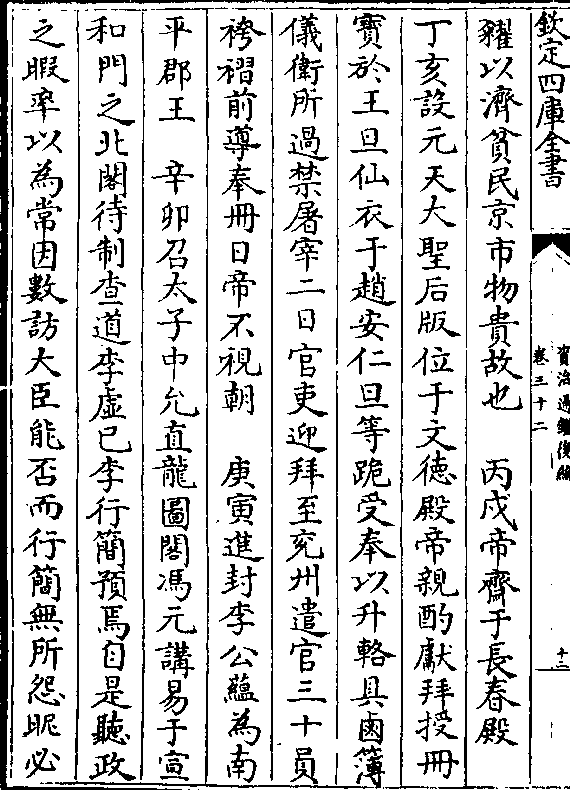 欽定四庫全書
資治通鑑後編
卷三十二
十二
糴以濟貧民京市物貴故也　丙戌帝齋于長春殿
丁亥設元天大聖后版位于文德殿帝親酌獻拜授冊
寶於王旦仙衣于趙安仁旦等跪受奉以升輅具鹵簿
儀衛所過禁屠宰二日官吏迎拜至兗州遣官三十員
袴褶前導奉冊日帝不視朝　庚寅進封李公蘊為南
平郡王　辛卯召太子中允直龍圖閣馮元講易于宣
和門之北閣待制查道李虛已李行簡預焉自是聽政
之暇率以為常因數訪大臣能否而行簡無所怨昵必